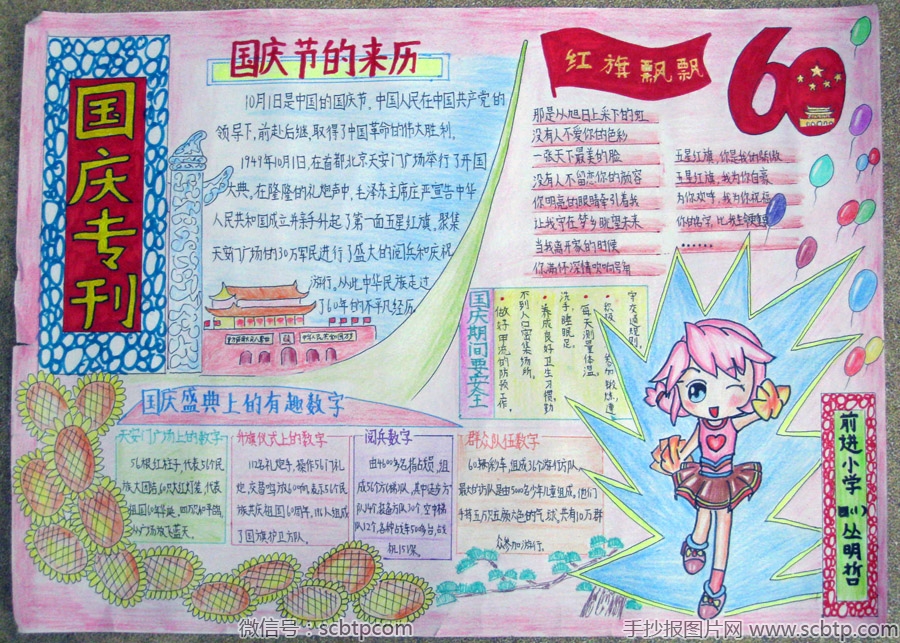 国庆专刊
国庆节的来历
10月1日是中国的国庆节,中国人民在中国共产党的
领导下,前赴后继,取得了中国革命的伟大胜利.
1949年10月1日,在首都北京天安门广场举行了开国
大典,在隆隆的礼炮声中,毛泽东主席庄严宣告中华
人民共和国成立并亲手升起了第一面五星红旗,聚集
天安门广场的30万军民进行了盛大的阅兵和庆祝
游行,从此中华民族走过
了60年的不平凡经历.
红旗飘飘
60
那是从旭日上采下的虹
没有人不爱你的色彩
一张天下最美的脸
没有人不留恋你的颜容
你明亮的眼睛牵引着我
让我守在梦乡眺望未来
当我离开家的时候
你满怀深情吹响号角
五星红旗,你是我的骄傲
五星红旗,我为你自豪
为你欢呼,我为你祝福
你的名字,比我生命更重
......
国庆期间要安全
宇交通规则.
每天测量体温,
洗手,睡眠足,
养成良好卫生习惯,勤
不到人口密集场所,
做好甲流的防预工作,
国庆盛典上的有趣数字
天安门广场上的数字
56根红柱子,代表56个民
族大团结60只大红灯笼,代表
祖国60年华诞,四万只和平鸽
从广场放飞蓝天.
升旗仪式上的数字
112名礼炮手,操作56门礼
炮,交替鸣放60响,表示56个民
族共庆祖国60周年,
了国旗护卫方队.
阅兵数字
组
成56个方梯队,其中徒步方
队14个,装备方队30个,空中梯
队12个,各种战车500多台,战
机151架.
群众队伍数字
60辆彩车,组成36个游行方队.
最大的方队是由5000名少年儿童组成,他们
手持五万只五颜六色的气球,共有10万群
众参加游行.
前进小学
四(1)
丛明哲
微信号:scbtpcom
手抄报图片网 www.scbtp.com